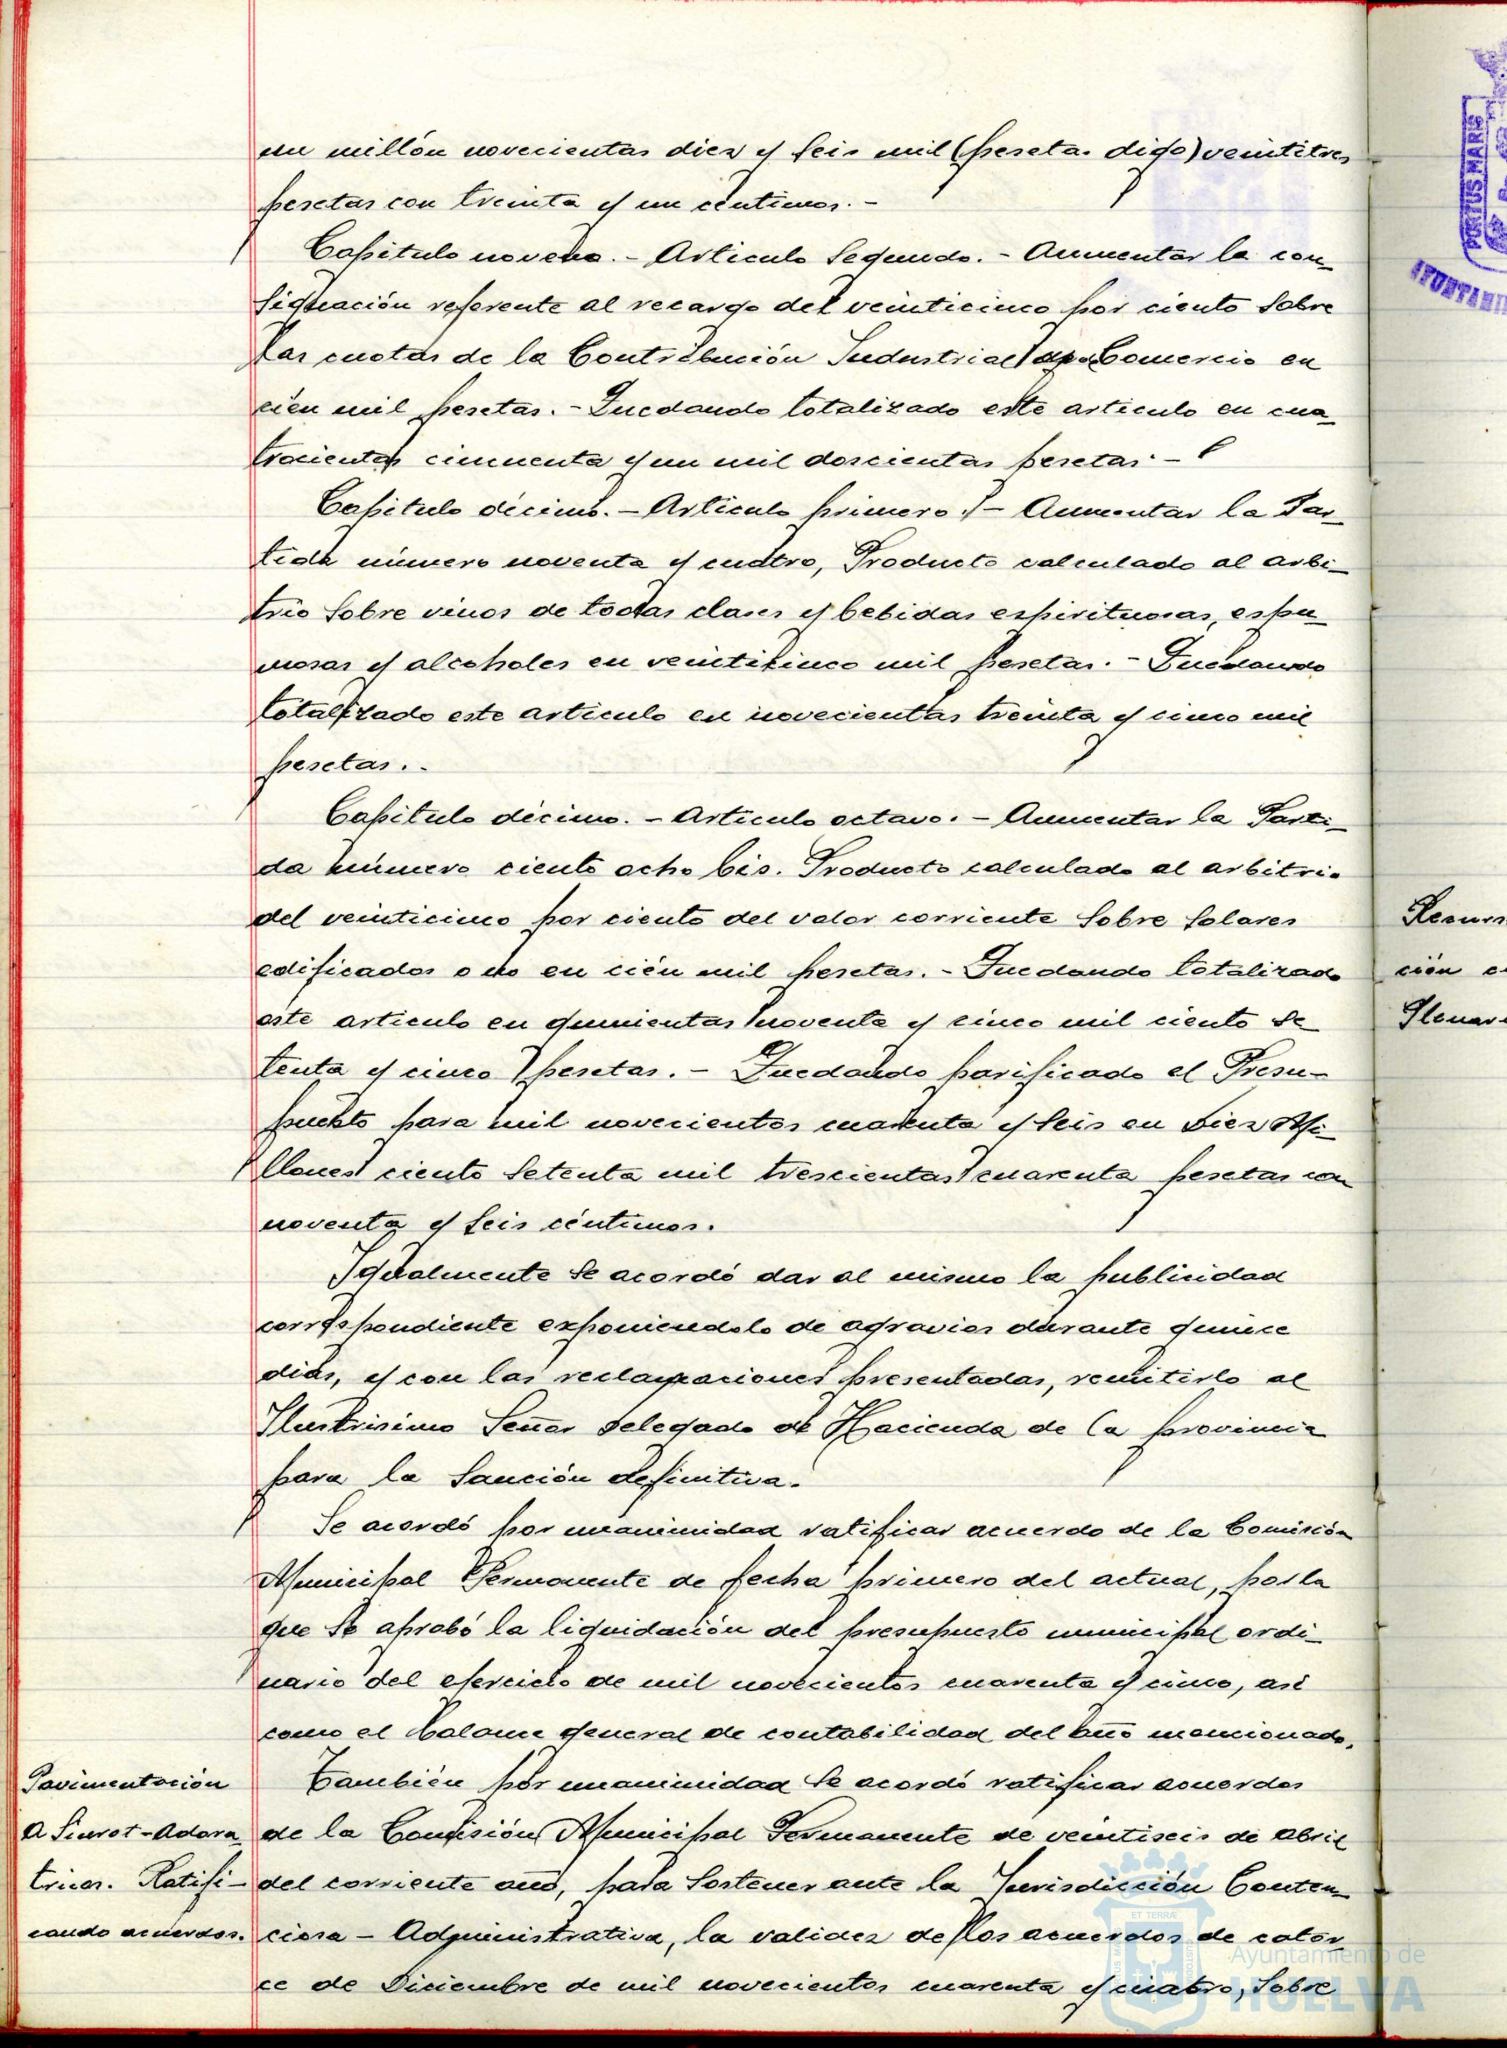 un millón novecientas diez y seis mil (peseta. digo) veintitres
pesetas con treinta y un centimos.-
Capitulo noveno.- Articulo Segundo.- Aumentar la con-
signación referente al recargo del veinticinco por ciento sobre
las cuotas de la Contribución Industrial Comercio en
cién mil pesetas.- Quedando totalizado este articulo en cua-
trocientas cincuenta y un mil doscientas pesetas.-
Capitulo décimo.- Articulo primero.- Aumentar la Par-
tida número noventa y cuatro, Producto calculado al arbi-
trio sobre vinos de todas clases y bebidas espirituosas, espu-
mosas y alcoholes en veinticinco mil pesetas.- Quedando
totalizado este articulo en novecientas treinta y cinco mil
pesetas.-
Capitulo décimo.- Articulo octavo.- Aumentar la Parti-
da número ciento ocho bis. Producto calculado al arbitrio
del veinticinco por ciento del valor corriente sobre solares
edificados o no en cién mil pesetas.- Quedando totalizado
este articulo en quinientas noventa y cinco mil ciento se-
tenta y cinco pesetas.- Quedando parificado el Presu-
puesto para mil novecientos cuarenta y seis en Diez Mi-
llones ciento setenta mil trescientas cuarenta pesetas con
noventa y seis céntimos.
Igualmente se acordó dar al mismo la publicidad
correspondiente exponiendolo de agravios durante quince
dias, y con las reclamaciones presentadas, remitirlo al
Ilustrisimo Señor Delegado de Hacienda de la provincia
para la sanción definitiva.
Se acordó por unanimidad ratificar acuerdo de la Comisión
Municipal Permanente de fecha primero del actual, por la
que se aprobó la liquidación del presupuesto municipal ordi-
nario del ejercicio de mil novecientos cuarenta y cinco, asi
como el balance general de contabilidad del año mencionado.
Pavimentación
A Siurot-Adora
trices. Ratifi-
cando acuerdos.
También por unanimidad se acordó ratificar acuerdos
de la Comisión Municipal Permanente de veintiseis de abril
del corriente año, para sostener ante la Jurisdicción Conten-
ciosa-Administrativa, la validez de los acuerdos de cator-
ce de Diciembre de mil novecientos cuarenta y cuatro, sobre
Ayuntamiento de
HUELVA
PORTUS MARIS
ción